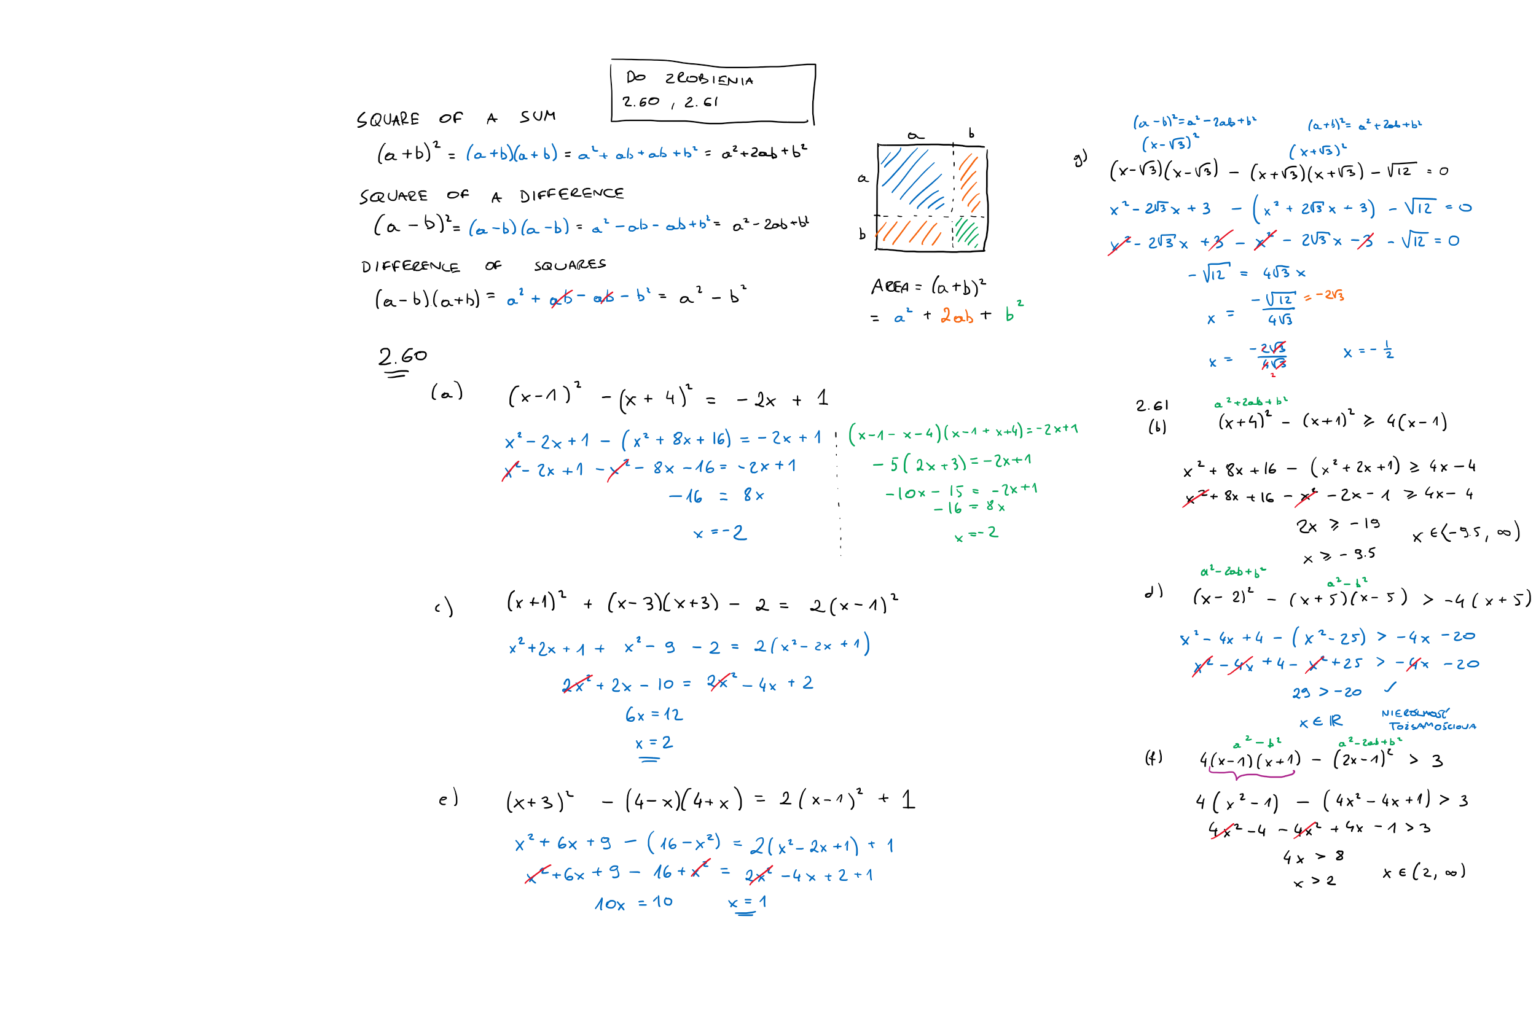 DO ZROBIENIA
2.60 , 2.61
SQUARE OF A SUM
(a+b)² = (a+b)(a+b) = a² + ab + ab + b² = a²+2ab+b²
SQUARE OF A DIFFERENCE
(a-b)² = (a-b)(a-b) = a² - ab - ab + b² = a² - 2ab + b²
DIFFERENCE OF SQUARES
(a-b)(a+b) = a² + ab - ab - b² = a² - b²
a b
a
b
AREA = (a+b)²
= a² + 2ab + b²
2.60
(a) (x-1)² - (x+4)² = -2x + 1
x² - 2x + 1 - (x² + 8x + 16) = -2x + 1
x² - 2x + 1 - x² - 8x - 16 = -2x + 1
-16 = 8x
x = -2
(x-1-x-4)(x-1+x+4) = -2x+1
-5(2x+3) = -2x+1
-10x - 15 = -2x+1
-16 = 8x
x = -2
c) (x+1)² + (x-3)(x+3) - 2 = 2(x-1)²
x²+2x+1 + x² - 9 - 2 = 2(x² - 2x + 1)
2x² + 2x - 10 = 2x² - 4x + 2
6x = 12
x = 2
e) (x+3)² - (4-x)(4+x) = 2(x-1)² + 1
x² + 6x + 9 - (16 - x²) = 2(x² - 2x + 1) + 1
x² + 6x + 9 - 16 + x² = 2x² - 4x + 2 + 1
10x = 10 x = 1
(a-b)² = a² - 2ab + b² (a+b)² = a² + 2ab + b²
(x-√3)² (x+√3)²
g) (x-√3)(x-√3) - (x+√3)(x+√3) - √12 = 0
x² - 2√3 x + 3 - (x² + 2√3 x + 3) - √12 = 0
x² - 2√3 x + 3 - x² - 2√3 x - 3 - √12 = 0
-√12 = 4√3 x
x = -√12 / 4√3 = -2√3
x = -2√3 / 4√3 2 x = - 1/2
2.61 a²+2ab+b²
(b) (x+4)² - (x+1)² ⩾ 4(x-1)
x² + 8x + 16 - (x² + 2x + 1) ⩾ 4x - 4
x² + 8x + 16 - x² - 2x - 1 ⩾ 4x - 4
2x ⩾ -19
x ⩾ -9.5 x ∈ ⟨-9.5, ∞)
a² - 2ab + b² a² - b²
d) (x-2)² - (x+5)(x-5) > -4(x+5)
x² - 4x + 4 - (x² - 25) > -4x - 20
x² - 4x + 4 - x² + 25 > -4x - 20
29 > -20 ✓
x ∈ ℝ NIERÓWNOŚĆ
TOŻSAMOŚCIOWA
a² - b² a² - 2ab + b²
(f) 4(x-1)(x+1) - (2x-1)² > 3
4(x² - 1) - (4x² - 4x + 1) > 3
4x² - 4 - 4x² + 4x - 1 > 3
4x > 8
x > 2 x ∈ (2, ∞)